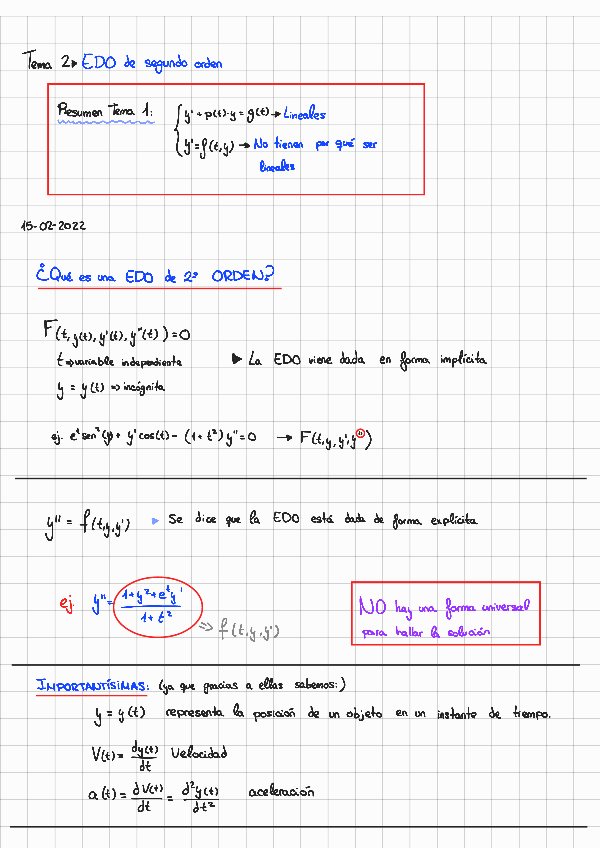 Tema 2▸ EDO de segundo orden
Resumen Tema 1: { y' + p(t)·y = g(t) → Lineales
y' = f(t,y) → No tienen por qué ser
lineales
15-02-2022
¿Qué es una EDO de 2º ORDEN?
F(t, y(t), y'(t), y''(t)) = 0
t ⇒ variable independiente ▸ La EDO viene dada en forma implícita
y = y(t) ⇒ incógnita
ej. e^t sen²(y) + y' cos(t) - (1+t²) y'' = 0 → F(t,y,y',y'')
y'' = f(t,y,y') ▸ Se dice que la EDO está dada de forma explícita
ej. y'' = (1+y²+e^t y')/(1+t²) ⇒ f(t,y,y')
NO hay una forma universal
para hallar la solución
IMPORTANTÍSIMAS: (ya que gracias a ellas sabemos:)
y = y(t) representa la posición de un objeto en un instante de tiempo.
V(t) = dy(t)/dt Velocidad
a(t) = dV(t)/dt = d²y(t)/dt² aceleración